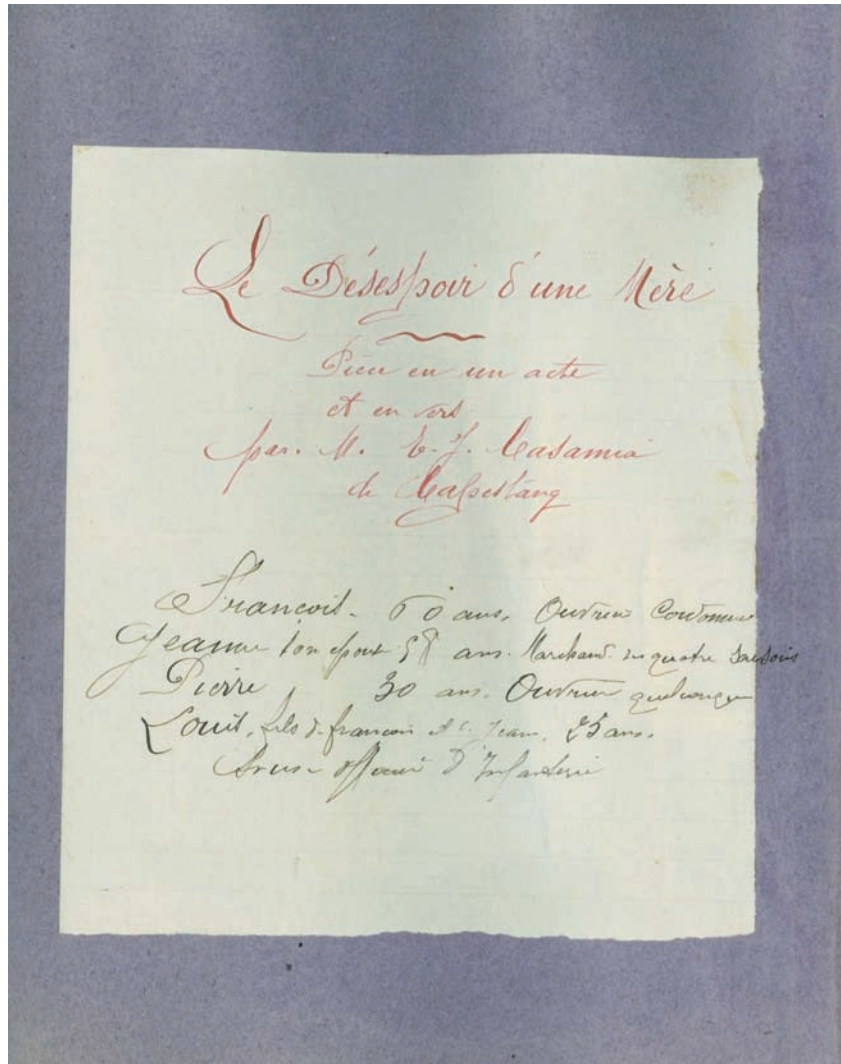 Le Désespoir d'une Mère
Pièce en un acte
et en vers
par. M. E. J. Casamia
de Capestang
François - 60 ans, Ouvrier Cordonnier
Jeanne son épouse 58 ans. Marchand des quatre saisons
Pierre, 30 ans. Ouvrier quelconque
Louis, fils de françois et de Jeanne, 25 ans.
Sous-officier d'Infanterie